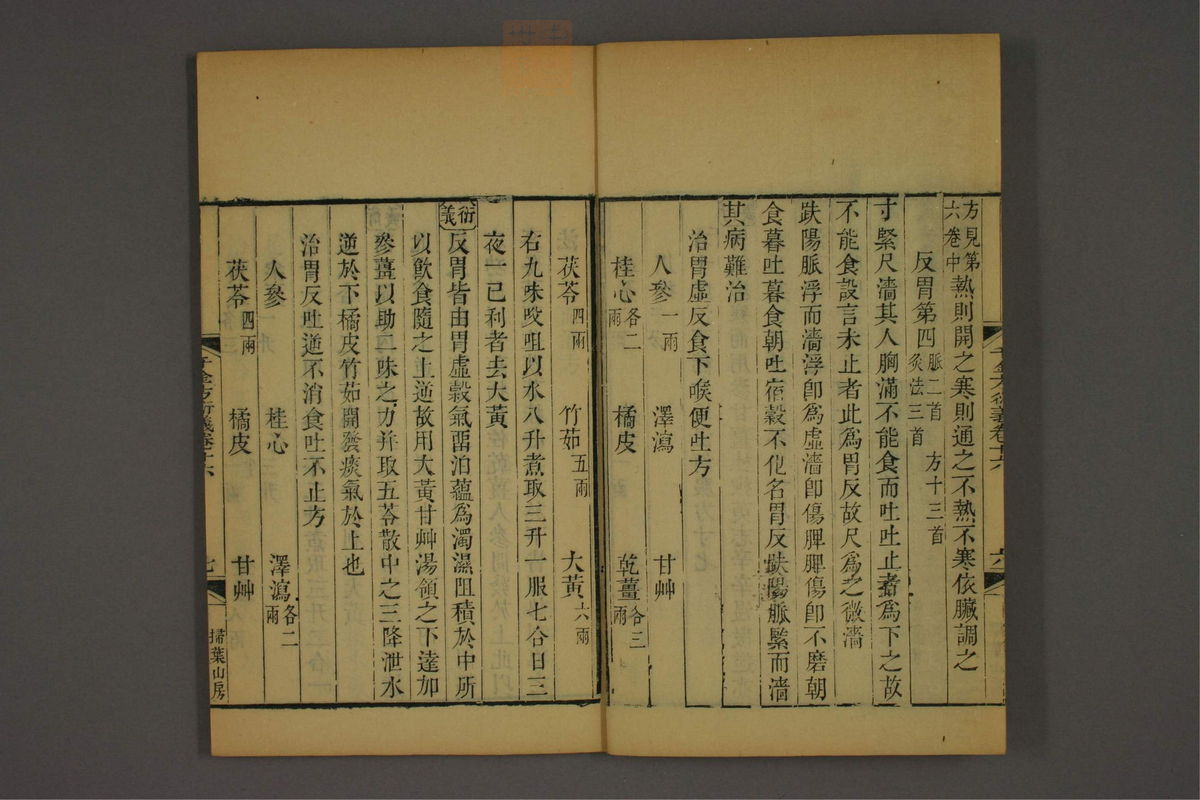 方見第六卷中熱則開之寒則通之不熱不寒依臟調之
反胃第四脈二首 方十三首灸法三首
寸緊尺濇其人胸滿不能食而吐吐止者爲下之故
不能食設言未止者此爲胃反故尺爲之微濇
趺陽脈浮而濇浮卽爲虛濇卽傷脾脾傷卽不磨朝
食暮吐暮食朝吐宿穀不化名胃反趺陽脈緊而濇
其病難治
治胃虛反食下喉便吐方
人參一兩 澤瀉 甘艸
桂心各二兩 橘皮 乾薑各三兩
茯苓四兩 竹茹五兩 大黃六兩
右九味㕮咀以水八升煮取三升一服七合日三
夜一已利者去大黃
衍義
反胃皆由胃虛穀氣畱泊蘊爲濁濕阻積於中所
以飲食隨之上逆故用大黃甘艸湯領之下達加
參薑以助二味之力幷取五苓散中之三降泄水
逆於下橘皮竹茹開發痰氣於上也
治胃反吐逆不消食吐不止方
人參 桂心 澤瀉各二兩
茯苓四兩 橘皮 甘艸
千金方衍義卷十六
七
掃葉山房
千金方衍義卷十六
六